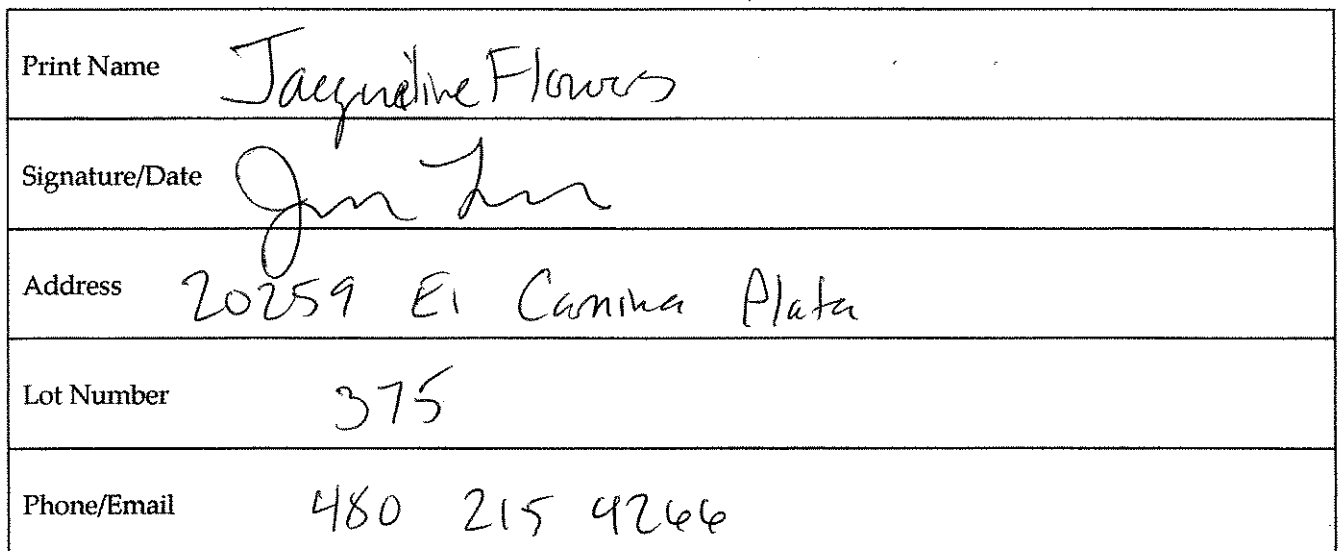 Print Name Jacqueline Flowers
Signature/Date
Address 20259 El Camina Plata
Lot Number 375
Phone/Email 480 215 4266